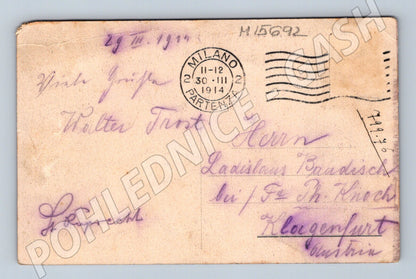 29 III. 1914
M15692
MILANO
PARTENZA
2 2
11-12
30·III
1914
Viele Grüße
Walter Trost
Herrn
Ladislaus Baudisch
bei/ Fa Th. Knoch
Klagenfurt
Austria
POHLEDNICE - CASH